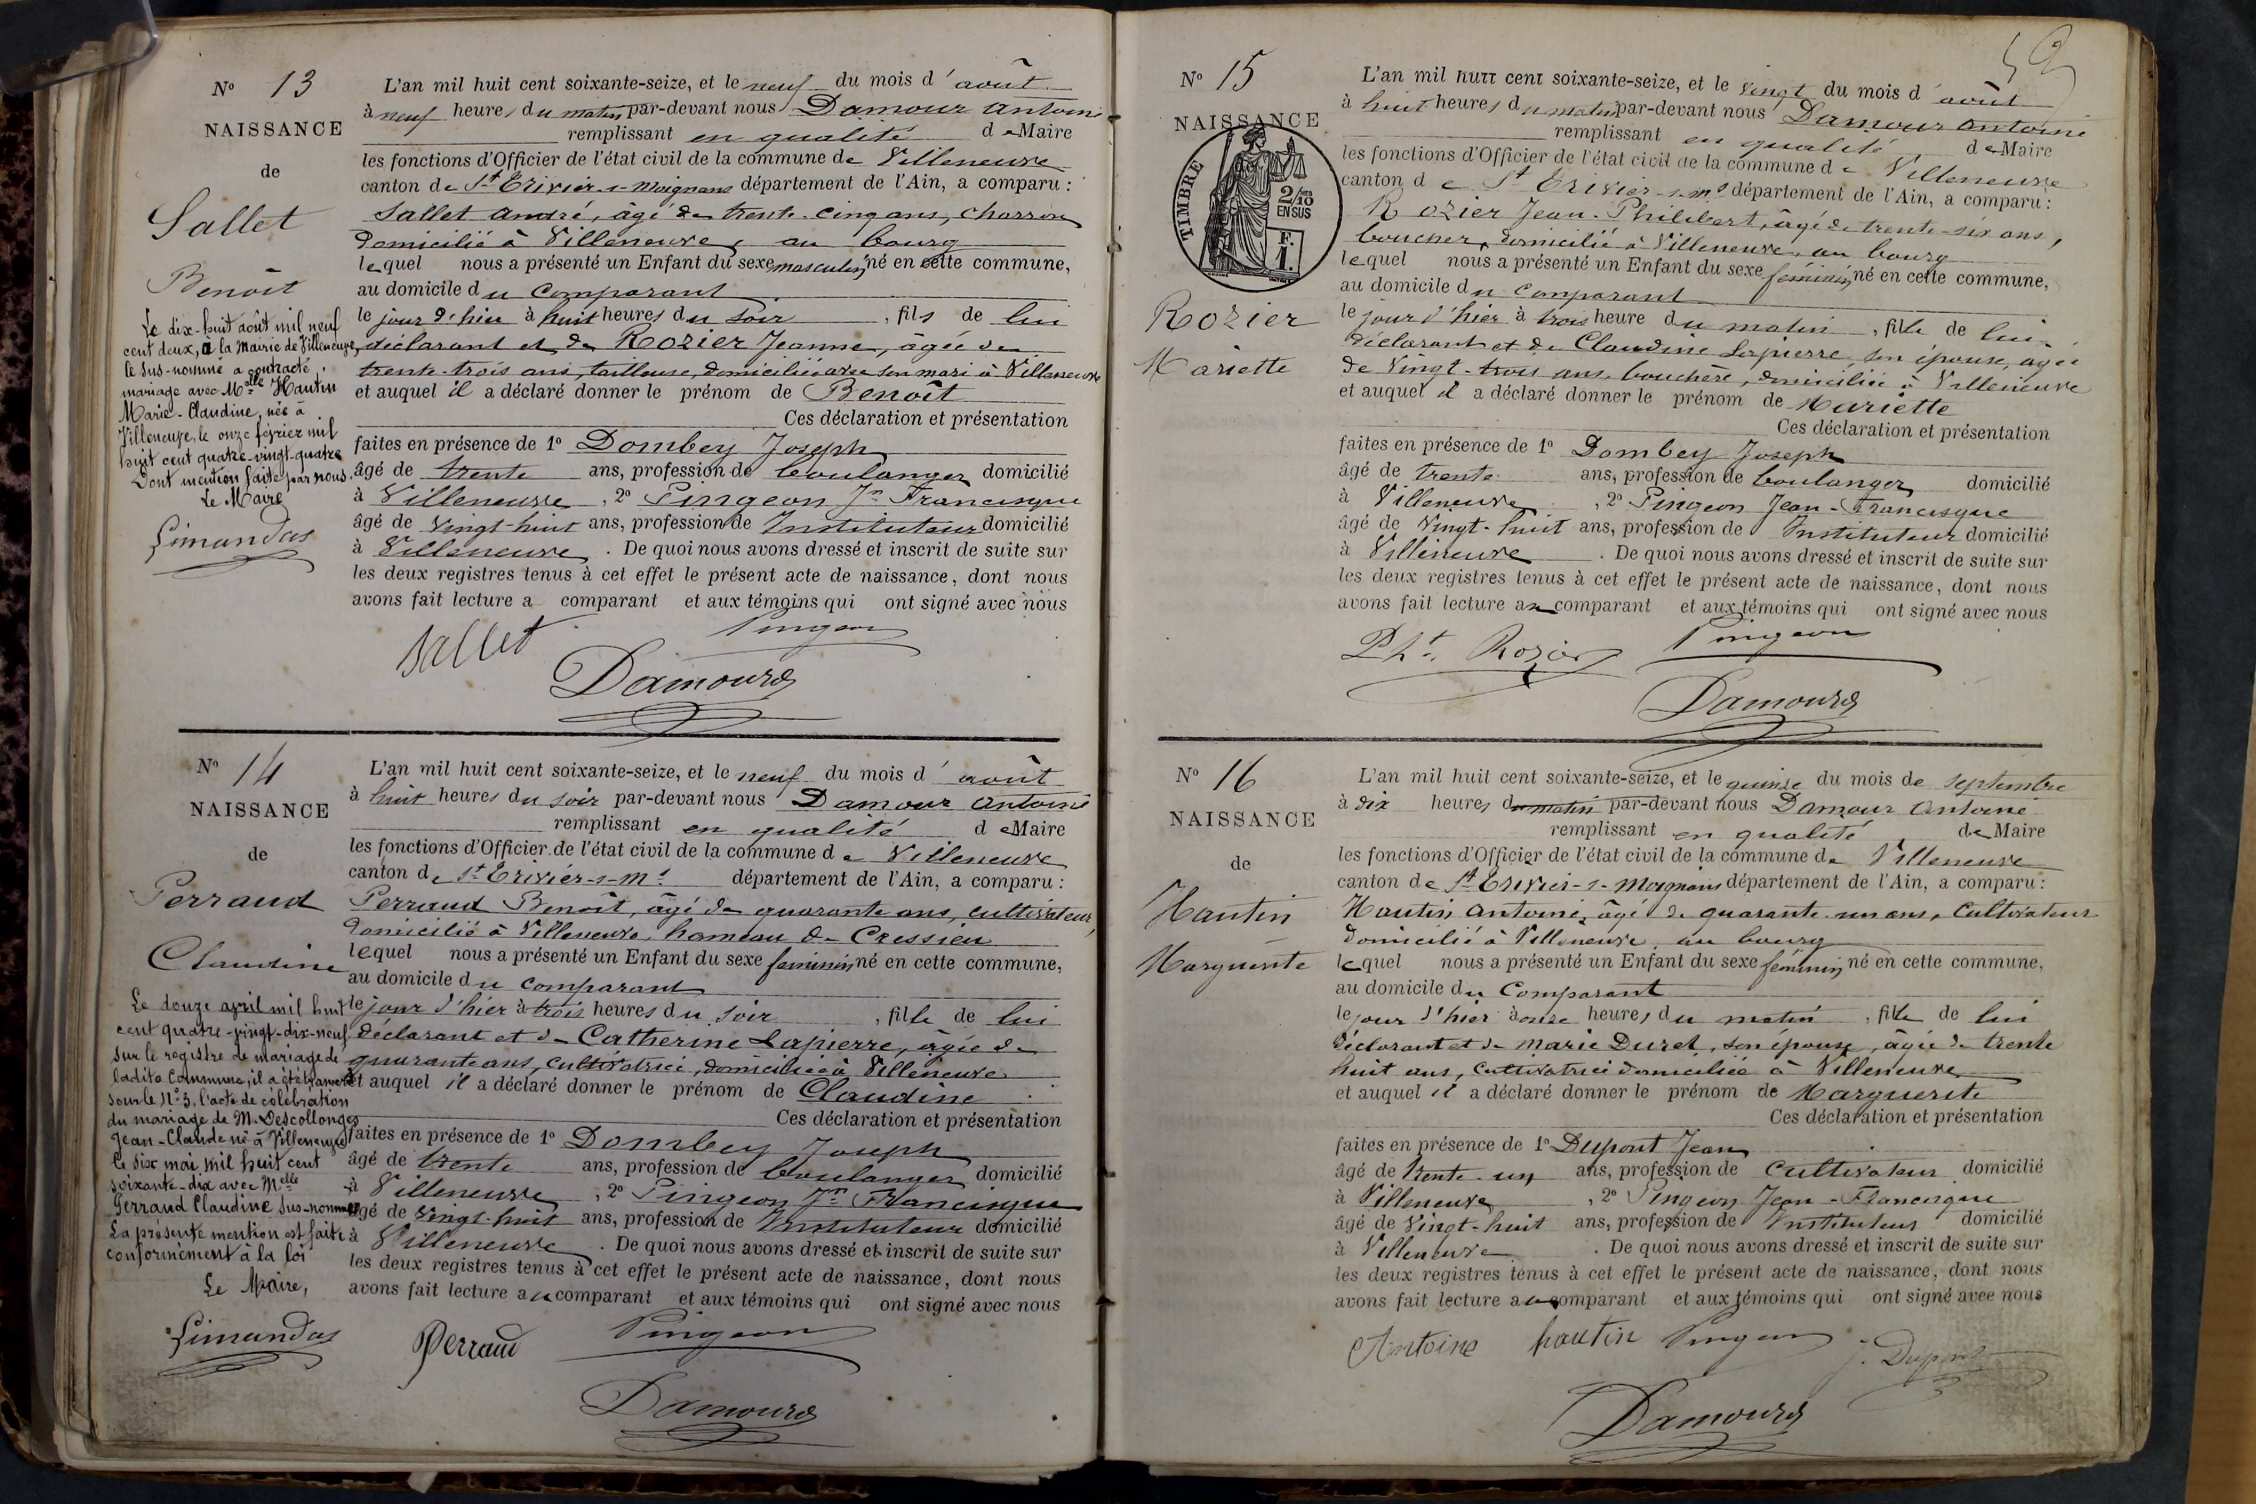 Nº 13
NAISSANCE
de
Sallet
Benoît
Le dix-huit août mil neuf
cent deux, à la Mairie de Villeneuve,
le sus-nommé a contracté
mariage avec Melle Hautin
Marie-Claudine, née à
Villeneuve, le onze février mil
huit cent quatre-vingt-quatre
Dont mention faite par nous.
Le Maire
Limandas
L'an mil huit cent soixante-seize, et le neuf du mois d'août
à neuf heures du matin par-devant nous Damour Antoine
remplissant en qualité de Maire
les fonctions d'Officier de l'état civil de la commune de Villeneuve
canton de St Trivier-s-Moignans département de l'Ain, a comparu :
Sallet André, âgé de trente-cinq ans, charron
domicilié à Villeneuve, au bourg
lequel nous a présenté un Enfant du sexe masculin, né en cette commune,
au domicile du comparant
le jour d'hier à huit heures du soir, fils de lui
déclarant et de Rozier Jeanne, âgée de
trente-trois ans, tailleuse, domiciliée avec son mari à Villeneuve
et auquel il a déclaré donner le prénom de Benoît
Ces déclaration et présentation
faites en présence de 1º Dombey Joseph
âgé de trente ans, profession de boulanger domicilié
à Villeneuve, 2º Pingeon Jn Francisque
âgé de vingt-huit ans, profession de Instituteur domicilié
à Villeneuve. De quoi nous avons dressé et inscrit de suite sur
les deux registres tenus à cet effet le présent acte de naissance, dont nous
avons fait lecture a comparant et aux témoins qui ont signé avec nous
Sallet Pingeon
Damour
Nº 14
NAISSANCE
de
Perraud
Claudine
Le douze avril mil huit
cent quatre-vingt-dix-neuf
sur le registre de mariage de
ladite Commune, il a été transcrit
sous le Nº 3, l'acte de célébration
du mariage de M. Descollonges
Jean-Claude né à Villeneuve
le six mai mil huit cent
soixante-dix avec Melle
Perraud Claudine sus-nommée
La présente mention est faite
conformément à la loi
Le Maire,
Limandas
L'an mil huit cent soixante-seize, et le neuf du mois d'août
à huit heures du soir par-devant nous Damour Antoine
remplissant en qualité de Maire
les fonctions d'Officier de l'état civil de la commune de Villeneuve
canton de St Trivier-s-Ms département de l'Ain, a comparu :
Perraud Benoît, âgé de quarante ans, cultivateur,
domicilié à Villeneuve, hameau de Cressieu
lequel nous a présenté un Enfant du sexe féminin, né en cette commune,
au domicile du comparant
le jour d'hier à trois heures du soir, fille de lui
déclarant et de Catherine Lapierre, âgée de
quarante ans, cultivatrice, domiciliée à Villeneuve
et auquel il a déclaré donner le prénom de Claudine
Ces déclaration et présentation
faites en présence de 1º Dombey Joseph
âgé de trente ans, profession de boulanger domicilié
à Villeneuve, 2º Pingeon Jn Francisque
âgé de vingt-huit ans, profession de Instituteur domicilié
à Villeneuve. De quoi nous avons dressé et inscrit de suite sur
les deux registres tenus à cet effet le présent acte de naissance, dont nous
avons fait lecture au comparant et aux témoins qui ont signé avec nous
Perraud Pingeon
Damour
Nº 15
NAISSANCE
TIMBRE
2/10
EN SUS
F.
1.
Rozier
Mariette
L'an mil huit cent soixante-seize, et le vingt du mois d'août
à huit heures du matin par-devant nous Damour Antoine
remplissant en qualité de Maire
les fonctions d'Officier de l'état civil de la commune de Villeneuve
canton de St Trivier-s-Ms département de l'Ain, a comparu :
Rozier Jean-Philibert, âgé de trente-six ans,
boucher, domicilié à Villeneuve, au bourg
lequel nous a présenté un Enfant du sexe féminin, né en cette commune,
au domicile du comparant
le jour d'hier à trois heure du matin, fille de lui
déclarant et de Claudine Lapierre son épouse, agée
de Vingt-trois ans, bouchère, domiciliée à Villeneuve
et auquel il a déclaré donner le prénom de Mariette
Ces déclaration et présentation
faites en présence de 1º Dombey Joseph
âgé de trente ans, profession de boulanger domicilié
à Villeneuve, 2º Pingeon Jean-Francisque
âgé de Vingt-huit ans, profession de Instituteur domicilié
à Villeneuve. De quoi nous avons dressé et inscrit de suite sur
les deux registres tenus à cet effet le présent acte de naissance, dont nous
avons fait lecture au comparant et aux témoins qui ont signé avec nous
Pht. Rozier Pingeon
Damour
Nº 16
NAISSANCE
de
Hautin
Marguerite
L'an mil huit cent soixante-seize, et le quinze du mois de septembre
à dix heures du matin par-devant nous Damour Antoine
remplissant en qualité de Maire
les fonctions d'Officier de l'état civil de la commune de Villeneuve
canton de St Trivier-s-Moignans département de l'Ain, a comparu :
Hautin Antoine, âgé de quarante-un ans, Cultivateur
domicilié à Villeneuve, au bourg
lequel nous a présenté un Enfant du sexe féminin né en cette commune,
au domicile du Comparant
le jour d'hier à onze heures du matin, fille de lui
déclarant et de Marie Duret, son épouse, âgée de trente
huit ans, Cultivatrice domiciliée à Villeneuve
et auquel il a déclaré donner le prénom de Marguerite
Ces déclaration et présentation
faites en présence de 1º Dupont Jean
âgé de trente-un ans, profession de Cultivateur domicilié
à Villeneuve, 2º Pingeon Jean-Francisque
âgé de Vingt-huit ans, profession de Instituteur domicilié
à Villeneuve. De quoi nous avons dressé et inscrit de suite sur
les deux registres tenus à cet effet le présent acte de naissance, dont nous
avons fait lecture au comparant et aux témoins qui ont signé avec nous
Antoine hautin Pingeon J. Dupont
Damour